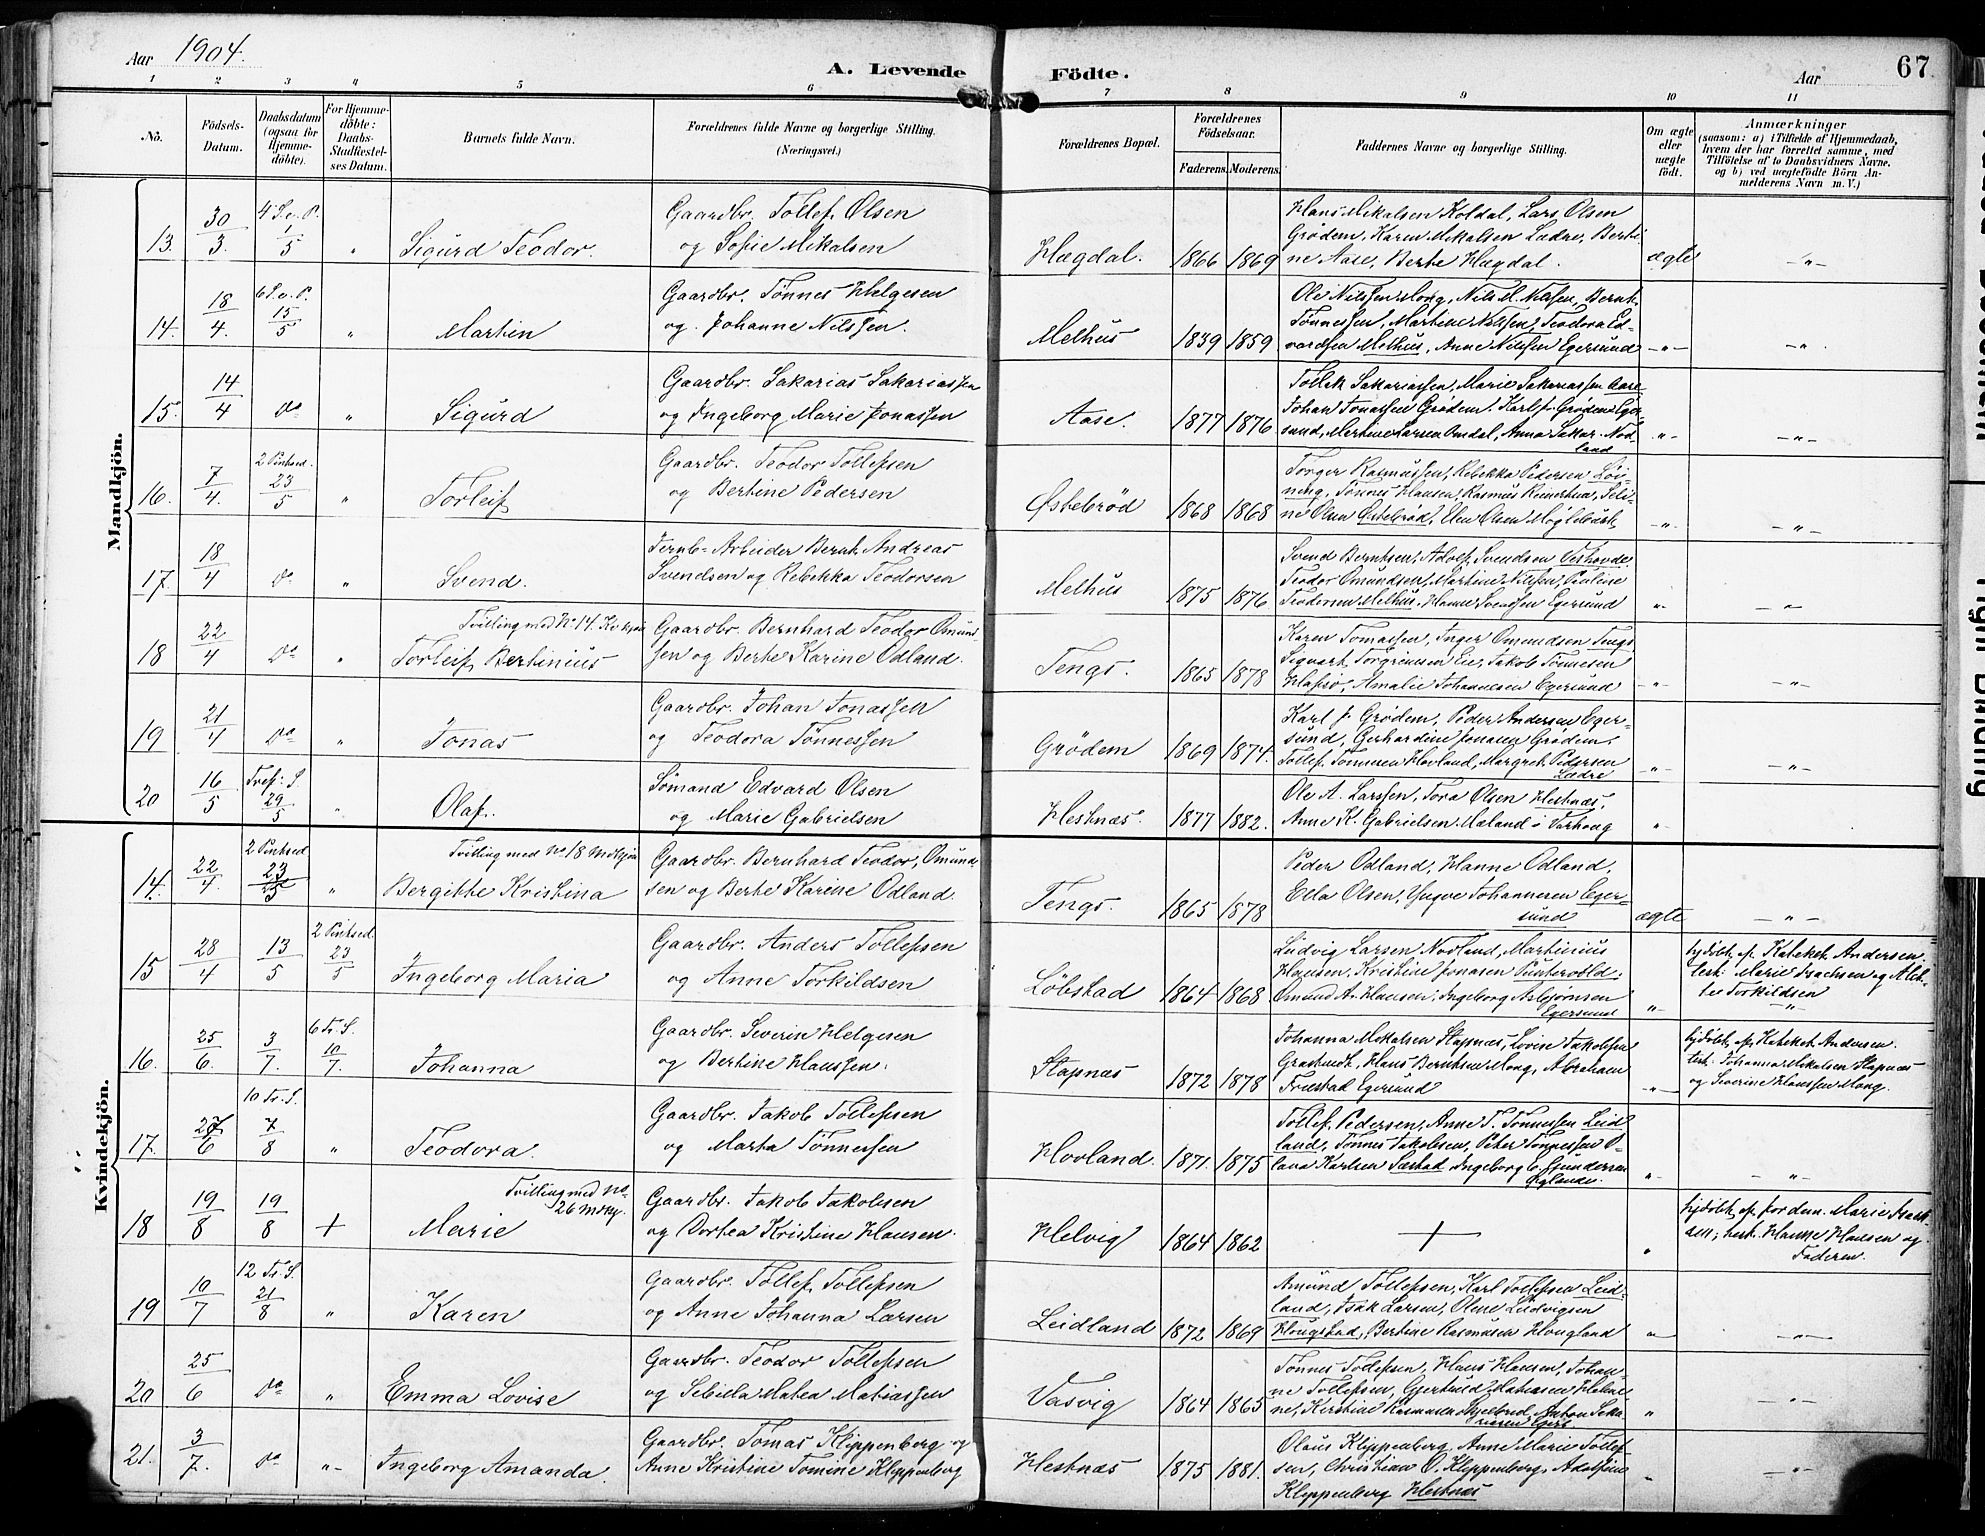 Aar 1904.
A. Levende Födte.
Aar
67
1 2 3 4 5 6 7 8 9 10 11
No.
Födsels-
Datum.
Daabsdatum
(ogsaa for
Hjemme-
döbte).
For Hjemme-
döbte:
Daabs-
Stadfæstel-
ses Datum.
Barnets fulde Navn.
Forældrenes fulde Navne og borgerlige Stilling.
(Næringsvei.)
Forældrenes Bopæl.
Forældrenes
Födselsaar.
Faderens. Moderens.
Faddernes Navne og borgerlige Stilling.
Om ægte
eller
uægte
födt.
Anmærkninger
(saasom: a) i Tilfælde af Hjemmedaab,
hvem der har forrettet samme, med
Tilföielse af to Daabsvidners Navne.
og b) ved uægtefödte Börn An-
melderens Navn m. V.)
Mandkjön.
13. 30/3. 4 S. e. P. 1/5 " Sigurd Teodor.
Gaardbr. Tollef Olsen
og Sofie Mikalsen
Hægdal. 1866 1869
Hans Mikalsen Koldal, Lars Olsen
Grødem, Karen Mikalsen Lædre, Berti-
ne Aase, Berte Hægdal.
ægte -"-
14. 18/4. 6 S. e. P. 15/5 " Martin
Gaardbr. Tønnes Helgesen
og Johanne Nilssen.
Melhus 1839 1859
Ole Nilssen Mong, Nils M. Nilssen, Bernh.
Tønnessen, Martine Nilssen, Teodora Ed-
vardsen Melhus, Anne Nilssen Egersund
-"- -"-
15. 14/4 do " Sigurd
Gaardbr. Sakarias Sakariassen
og Ingeborg Marie Jonassen
Aase. 1877 1876
Tollak Sakariassen, Marie Sakariassen Aase
Johan Jonassen Grødem, Karl J. Grødem Eger-
sund, Martine Larsen Omdal, Anna Sakar. Nod-
land
"- -"-
16. 7/4. 2 Pintsed. 23/5 " Torleif
Gaardbr. Teodor Tollefsen
og Bertine Pedersen
Østebrød 1868 1868
Torger Rasmussen, Rebekka Pedersen Løi-
ning, Tønnes Hansen, Rasmus Reinertsen, Seli-
ne Olsen Østebrød, Elen Olsen Møglebust
-"- -"-
17. 18/4 do " Svend.
Jernb-Arbeider Bernh. Andreas
Svendsen og Rebekka Teodorsen
Melhus 1875 1876
Svend Berntsen, Adolf Svendsen Verhovde
Teodor Omundsen, Martine Nilssen, Pauline
Teodorsen Melhus, Hanne Svendsen Egersund
"- -"-
18 22/4 do " Tvilling med No 14. Kvkjøn
Torleif Bertinius
Gaardbr. Bernhard Teodor Omund-
sen og Berte Karine Odland.
Tengs. 1865 1878
Karen Tomassen, Inger Omundsen Tengs,
Sigvart Torgrimsen Eie, Jakob Tønnesen
Hafsø, Amalie Johannesen Egersund
-"- -"-
19 21/4 do " Jonas
Gaardbr. Johan Jonassen
og Teodora Tønnessen
Grødem 1869 1874.
Karl J. Grødem, Peder Andersen Eger-
sund, Gerhardine Jonasen Grødem.
Tollef Tønnesen Hovland, Margret Pedersen
Lædre
"- -"-
20 16/5 Tref: S. 29/5 " Olaf.
Sømand Edvard Olsen
og Marie Gabrielsen
Hestnæs. 1877 1882.
Ole A. Larssen, Tora Olsen Hestnæs,
Anne K. Gabrielsen Maland i Varhoug
"-
Kvindekjön.
14. 22/4. 2 Pintsed 23/5 " Tvilling med No 18 Mdkjøn
Bergitte Kristina
Gaardbr. Bernhard Teodor Omund-
sen og Berte Karine Odland.
Tengs. 1865 1878
Peder Odland, Hanne Odland,
Ella Olsen, Yngve Johannesen Eger-
sund
ægte -"-
15 28/4 13/5 2 Pintsed. 23/5 Ingeborg Maria
Gaardbr. Anders Tollefsen
og Anne Torkildsen
Løbstad 1864 1868
Ludvig Larsen Nodland, Martinius
Hansen, Kristine Jonasen Puntervold.
Omund A. Hansen, Ingeborg Asbjørnsen
Egersund
"-
hjdøbt af Kateket Andersen.
test: Marie Isachsen og Alet-
te Torkildsen
16. 25/6. 3/7. 6 Tr. S. 10/7. Johanna
Gaardbr. Severin Helgesen
og Bertine Hanssen.
Stapnæs 1872 1878
Johanna Mikalsen Stapnæs, Lovise Jakobsen
Grastveidt, Hans Berntsen Mong, Abraham
Friestad Egersund
"-
hjdøbt af Kateket Andersen.
test: Johanna Mikalsen Stapnæs
og Severine Hanssen Mong.
17. 27/6 10 Tr. S. 7/8 " Teodora.
Gaardbr. Jakob Tollefsen
og Marta Tønnessen
Hovland. 1871. 1875
Tollef Pedersen, Anne T. Tønnessen Leid-
land, Tønnes Jakobsen, Peter Tønnessen O-
lava Karlsen Sæstad, Ingeborg Gunderson
"- -"-
18 19/8 19/8 + Tvilling med No
26 Mdkj.
Marie
Gaardbr. Jakob Jakobsen
og Dortea Kristine Hansen.
Helvig 1864 1862 + "
hjdøbt af jordem. Marie Isach-
sen; test. Hanne Hansen og
Faderen.
19 10/7 12 Tr. S. 21/8 " Karen
Gaardbr. Tollef Tollefsen
og Anne Johanna Larsen
Leidland 1872 1869
Amund Tollefsen, Karl Tollefsen Leid-
land, Isak Larsen, Oline Ludvigsen
Hougstad, Bertine Rasmusen Hougland
"- -"-
20 25/6 do " Emma Lovise
Gaardbr. Teodor Tollefsen
og Sebiella Matea Matiassen
Vasvig 1864 1865
Tønnes Tollefsen, Hans Hansen, Johan-
ne Tollefsen, Gjertrud Matiasen Hellvi-
" "
21. 3/7. do -"- Ingeborg Amanda.
Gaardbr. Tomas Klippenberg og
Anne Kristine Tomine Klippenberg
Hestnæs 1875 1881.
Olaus Klippenberg, Anne Marie Tollef-
sen, Christian O. Klippenberg, Adolfine
Klippenberg Hestnæs
" -"-